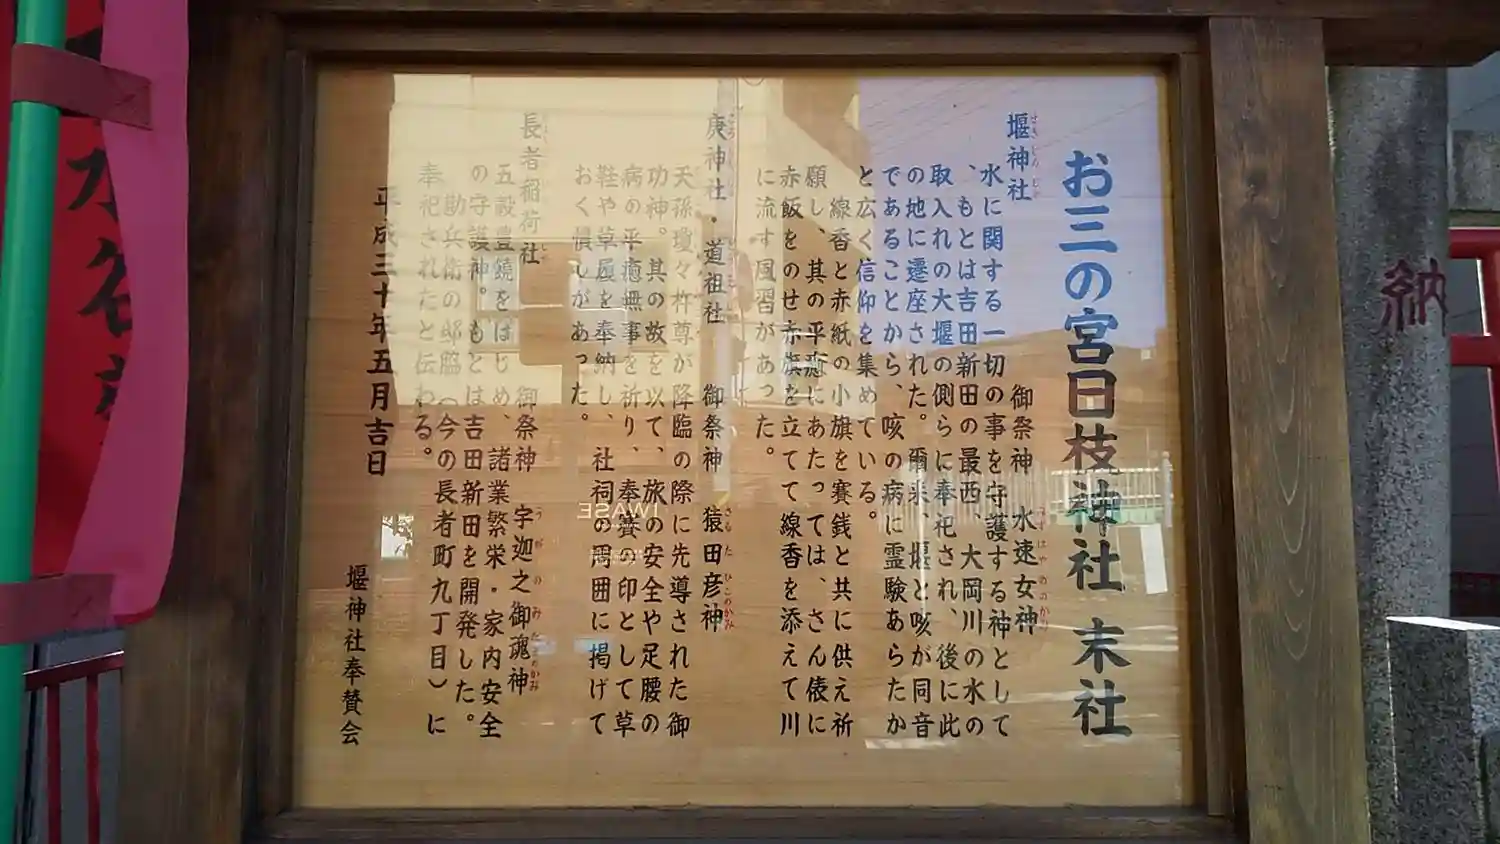 お三の宮日枝神社 末社
堰神社 御祭神 水速女神
水に関する一切の事を守護する神として
、もとは吉田新田の最西、大岡川の水の
取入れの大堰の側らに奉祀され、後に此
の地に遷座された。爾来、堰と咳が同音
であることから、咳の病に霊験あらたか
と広く信仰を集めている。
線香と赤紙の小旗を賽銭と共に供え祈
願し、其の平癒にあたっては、さん俵に
赤飯をのせ赤旗を立てて線香を添えて川
に流す風習があった。
庚神社・道祖社 御祭神 猿田彦神
さるたひこのかみ
天孫瓊々杵尊が降臨の際に先導された御
功神。其の故を以て、旅の安全や足腰の
病の平癒無事を祈り、奉賽の印として草
鞋や草履を奉納し、社祠の周囲に掲げて
おく慣しがあった。
長者稲荷社 御祭神 宇迦之御魂神
うがのみたまのかみ
五穀豊饒をはじめ、諸業繁栄・家内安全
の守護神。もとは吉田新田を開発した。
勘兵衛の邸脇（今の長者町九丁目）に
奉祀されたと伝わる。
平成三十年五月吉日
堰神社奉賛会
納
IWASE